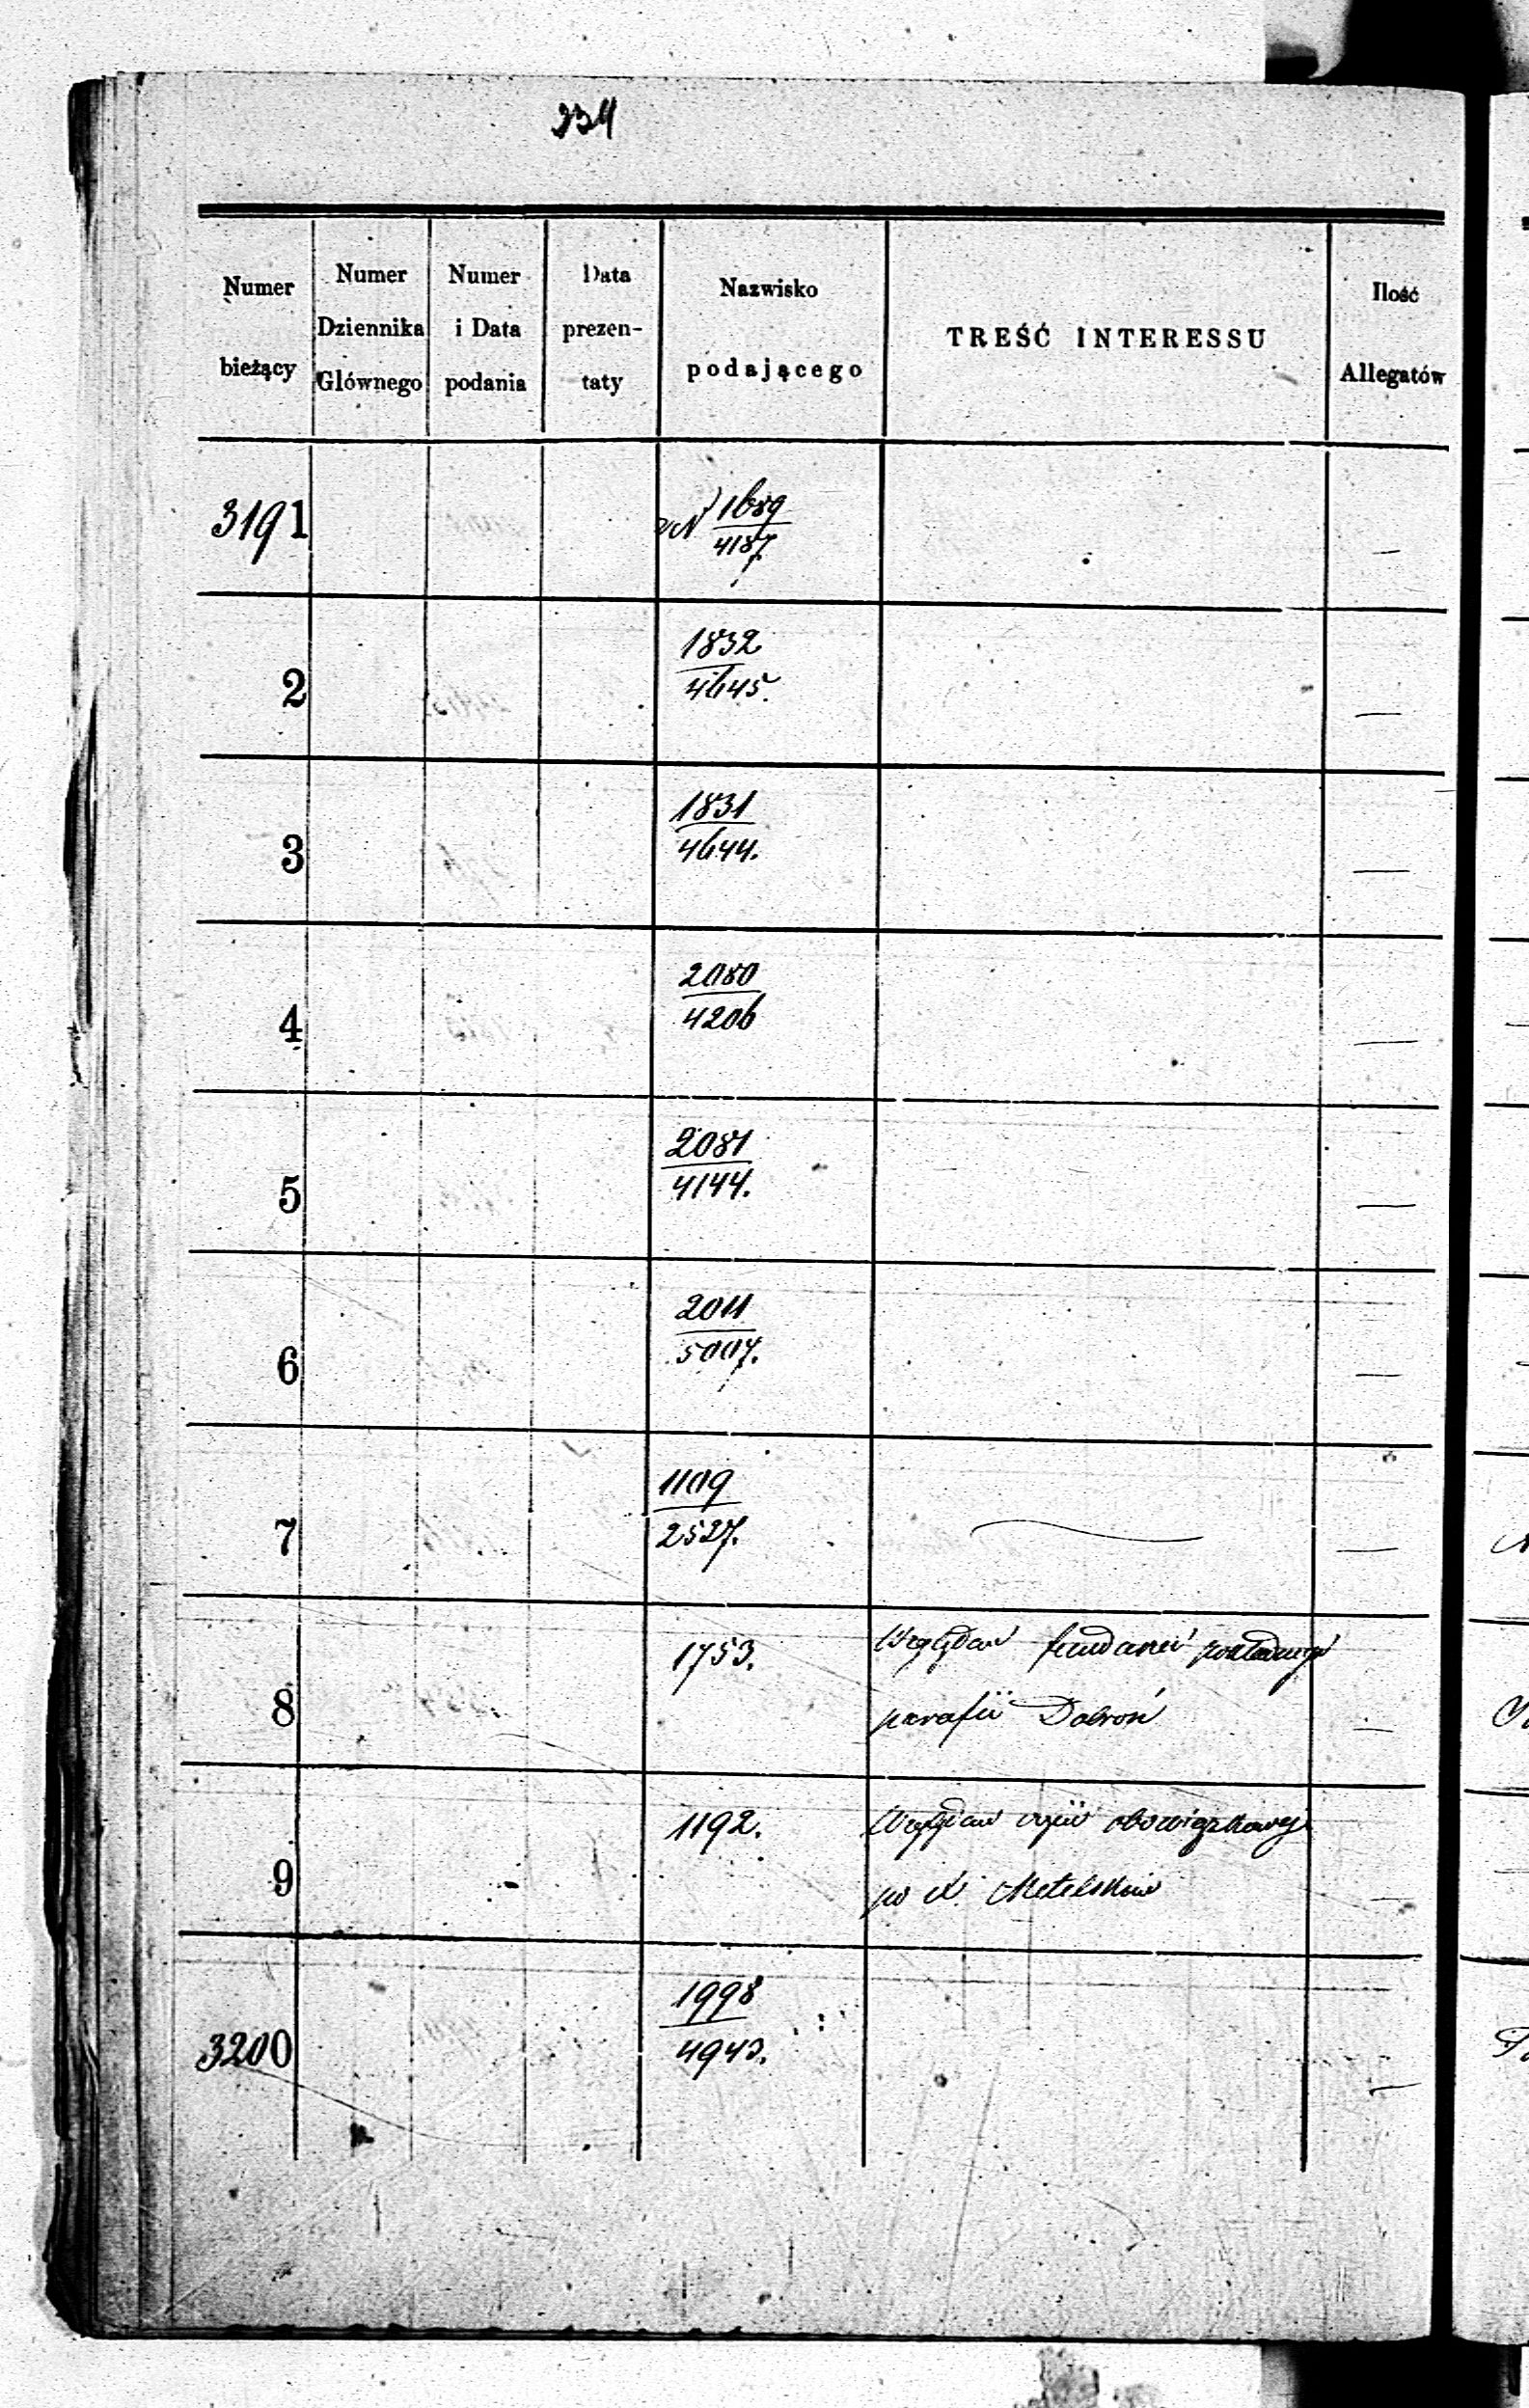 234
Numer
bieżący
Numer
Dziennika
Głównego
Numer
i Data
podania
Data
prezen-
taty
Nazwisko
podającego
TREŚĆ INTERESSU
Ilość
Allegatów
3191
N 1689
4187.
—
2
1832
4645.
—
3
1831
4644.
—
4
2080
4206
—
5
2081
4144.
—
6
2011
5007.
—
7
1109
2527.
—
8
1753.
Względem
parafii Dobroń
—
9
1192.
Względem obowiązkowej
po X.
—
3200
1998
4943.
—